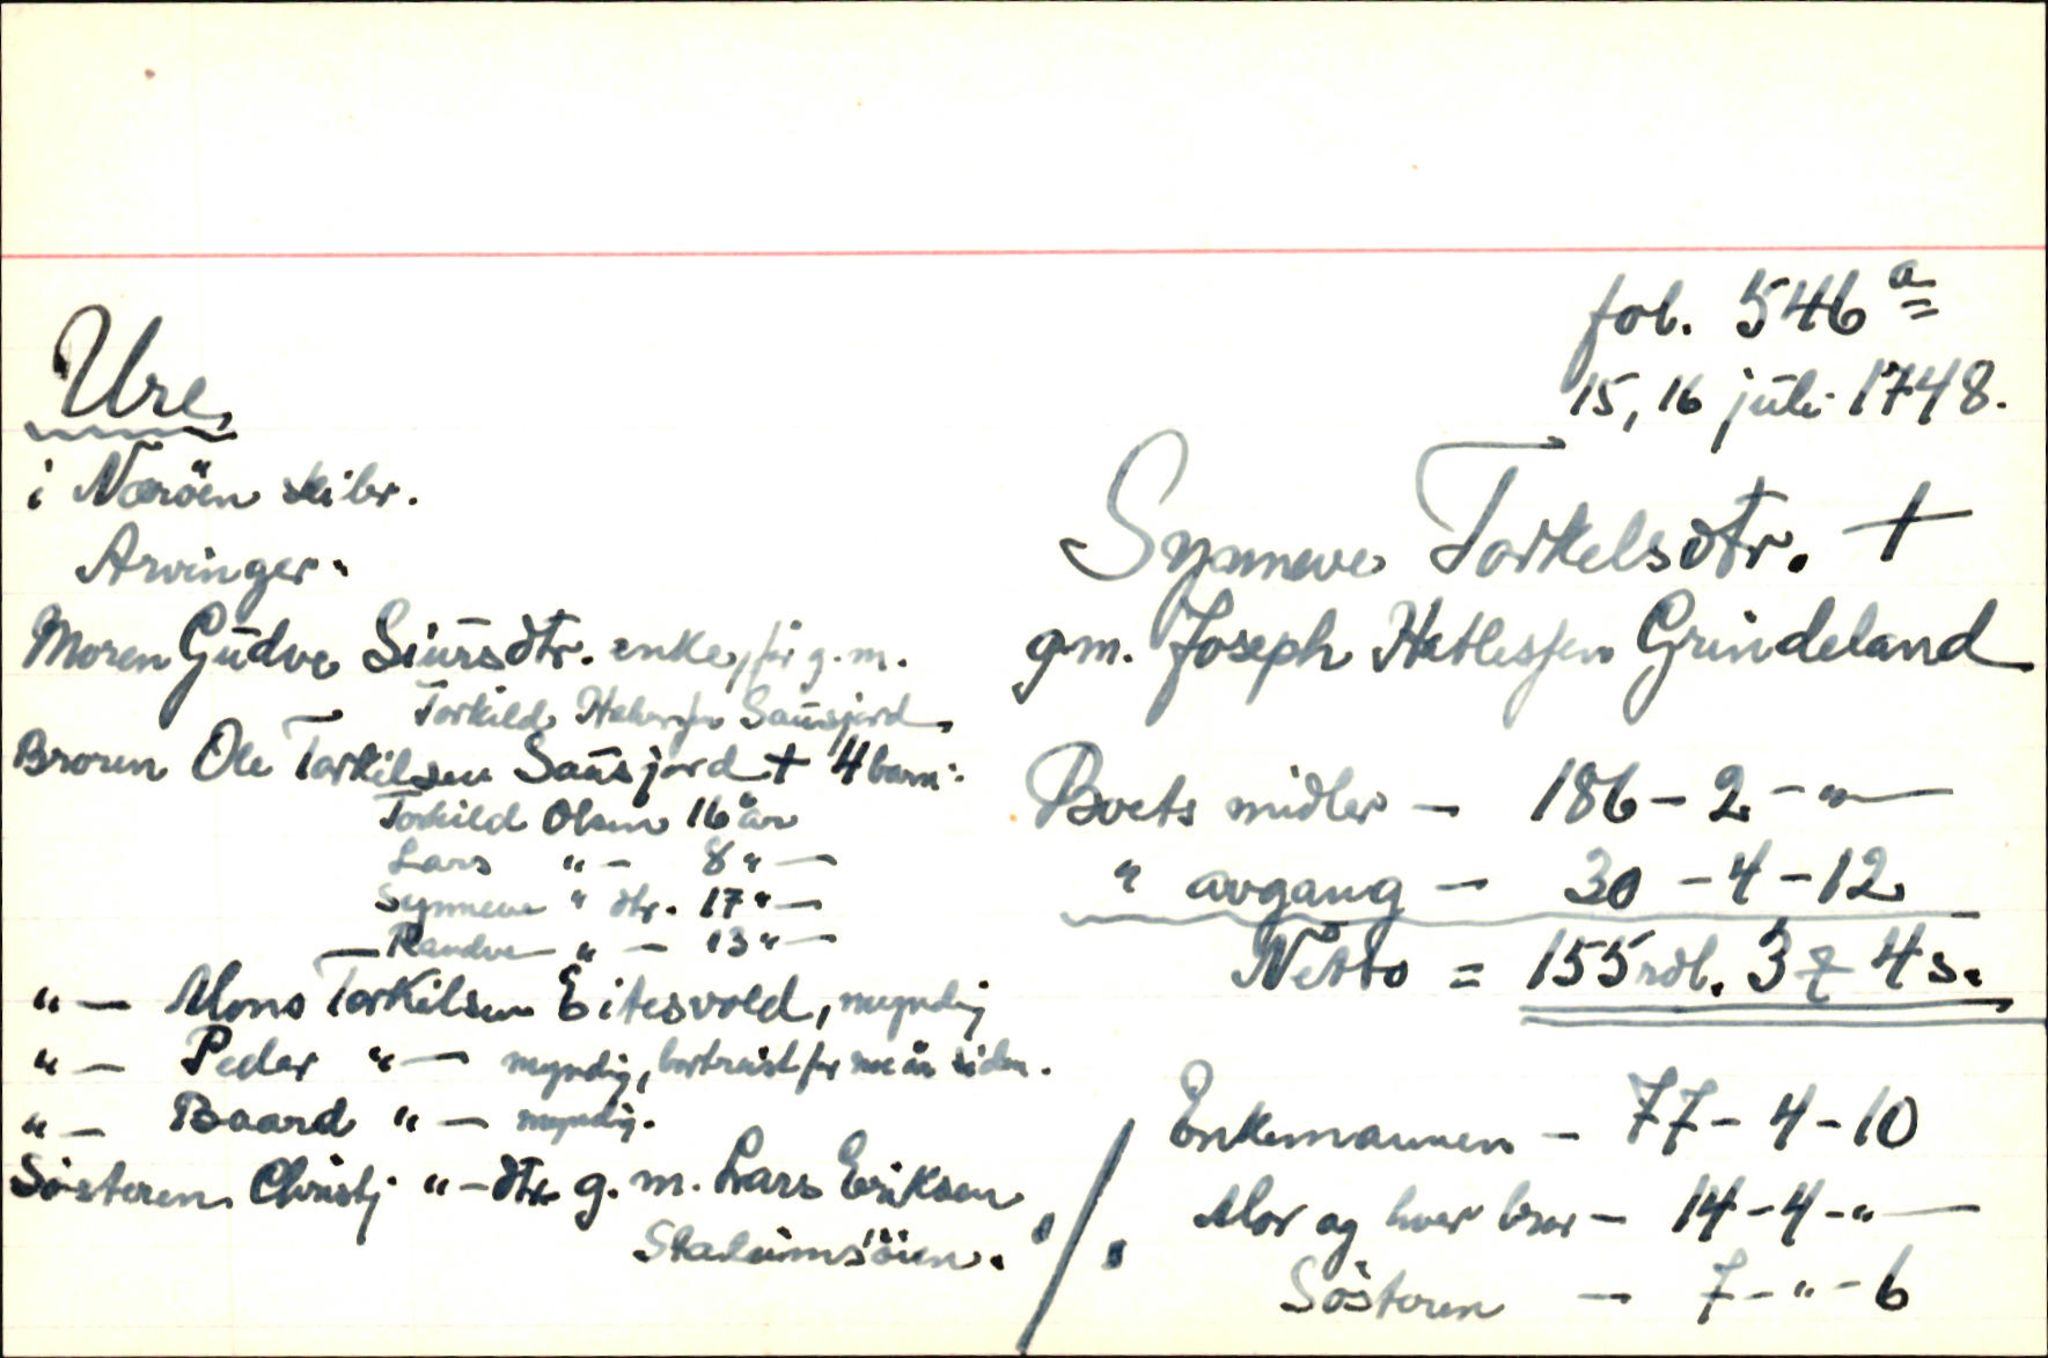 fol. 546 a
15, 16 juli 1748.
Ure
i Næröen skibr.
Arvinger:
Synneve Torkelsdtr. +
gm. Joseph Hetlesjen Grindeland
Moren Gudve Siursdtr. enke, før g. m.
Torkild Sausjord
Broren Ole Torkilsen Sausjord + 4 barn:
Torkild Olsen 16 år
Lars " — 8 " —
Synneve " dtr. 17 " —
Randve " — 13 " —
" — Mons Torkilsen Eitesvold, myndig
" — Peder " — myndig, bortreist for siden.
" — Baard " — myndig.
Søsteren Christj " — dtr g. m. Lars Eriksen
Stadeimsöien.
Boets midler — 186 – 2 – " —
" avgang — 30 – 4 – 12
Netto = 155 rdl. 3 4 s.
Enkemannen — 77 – 4 – 10
Mor og hver bror — 14 – 4 – " —
Søsteren — 7 – " – 6
./.